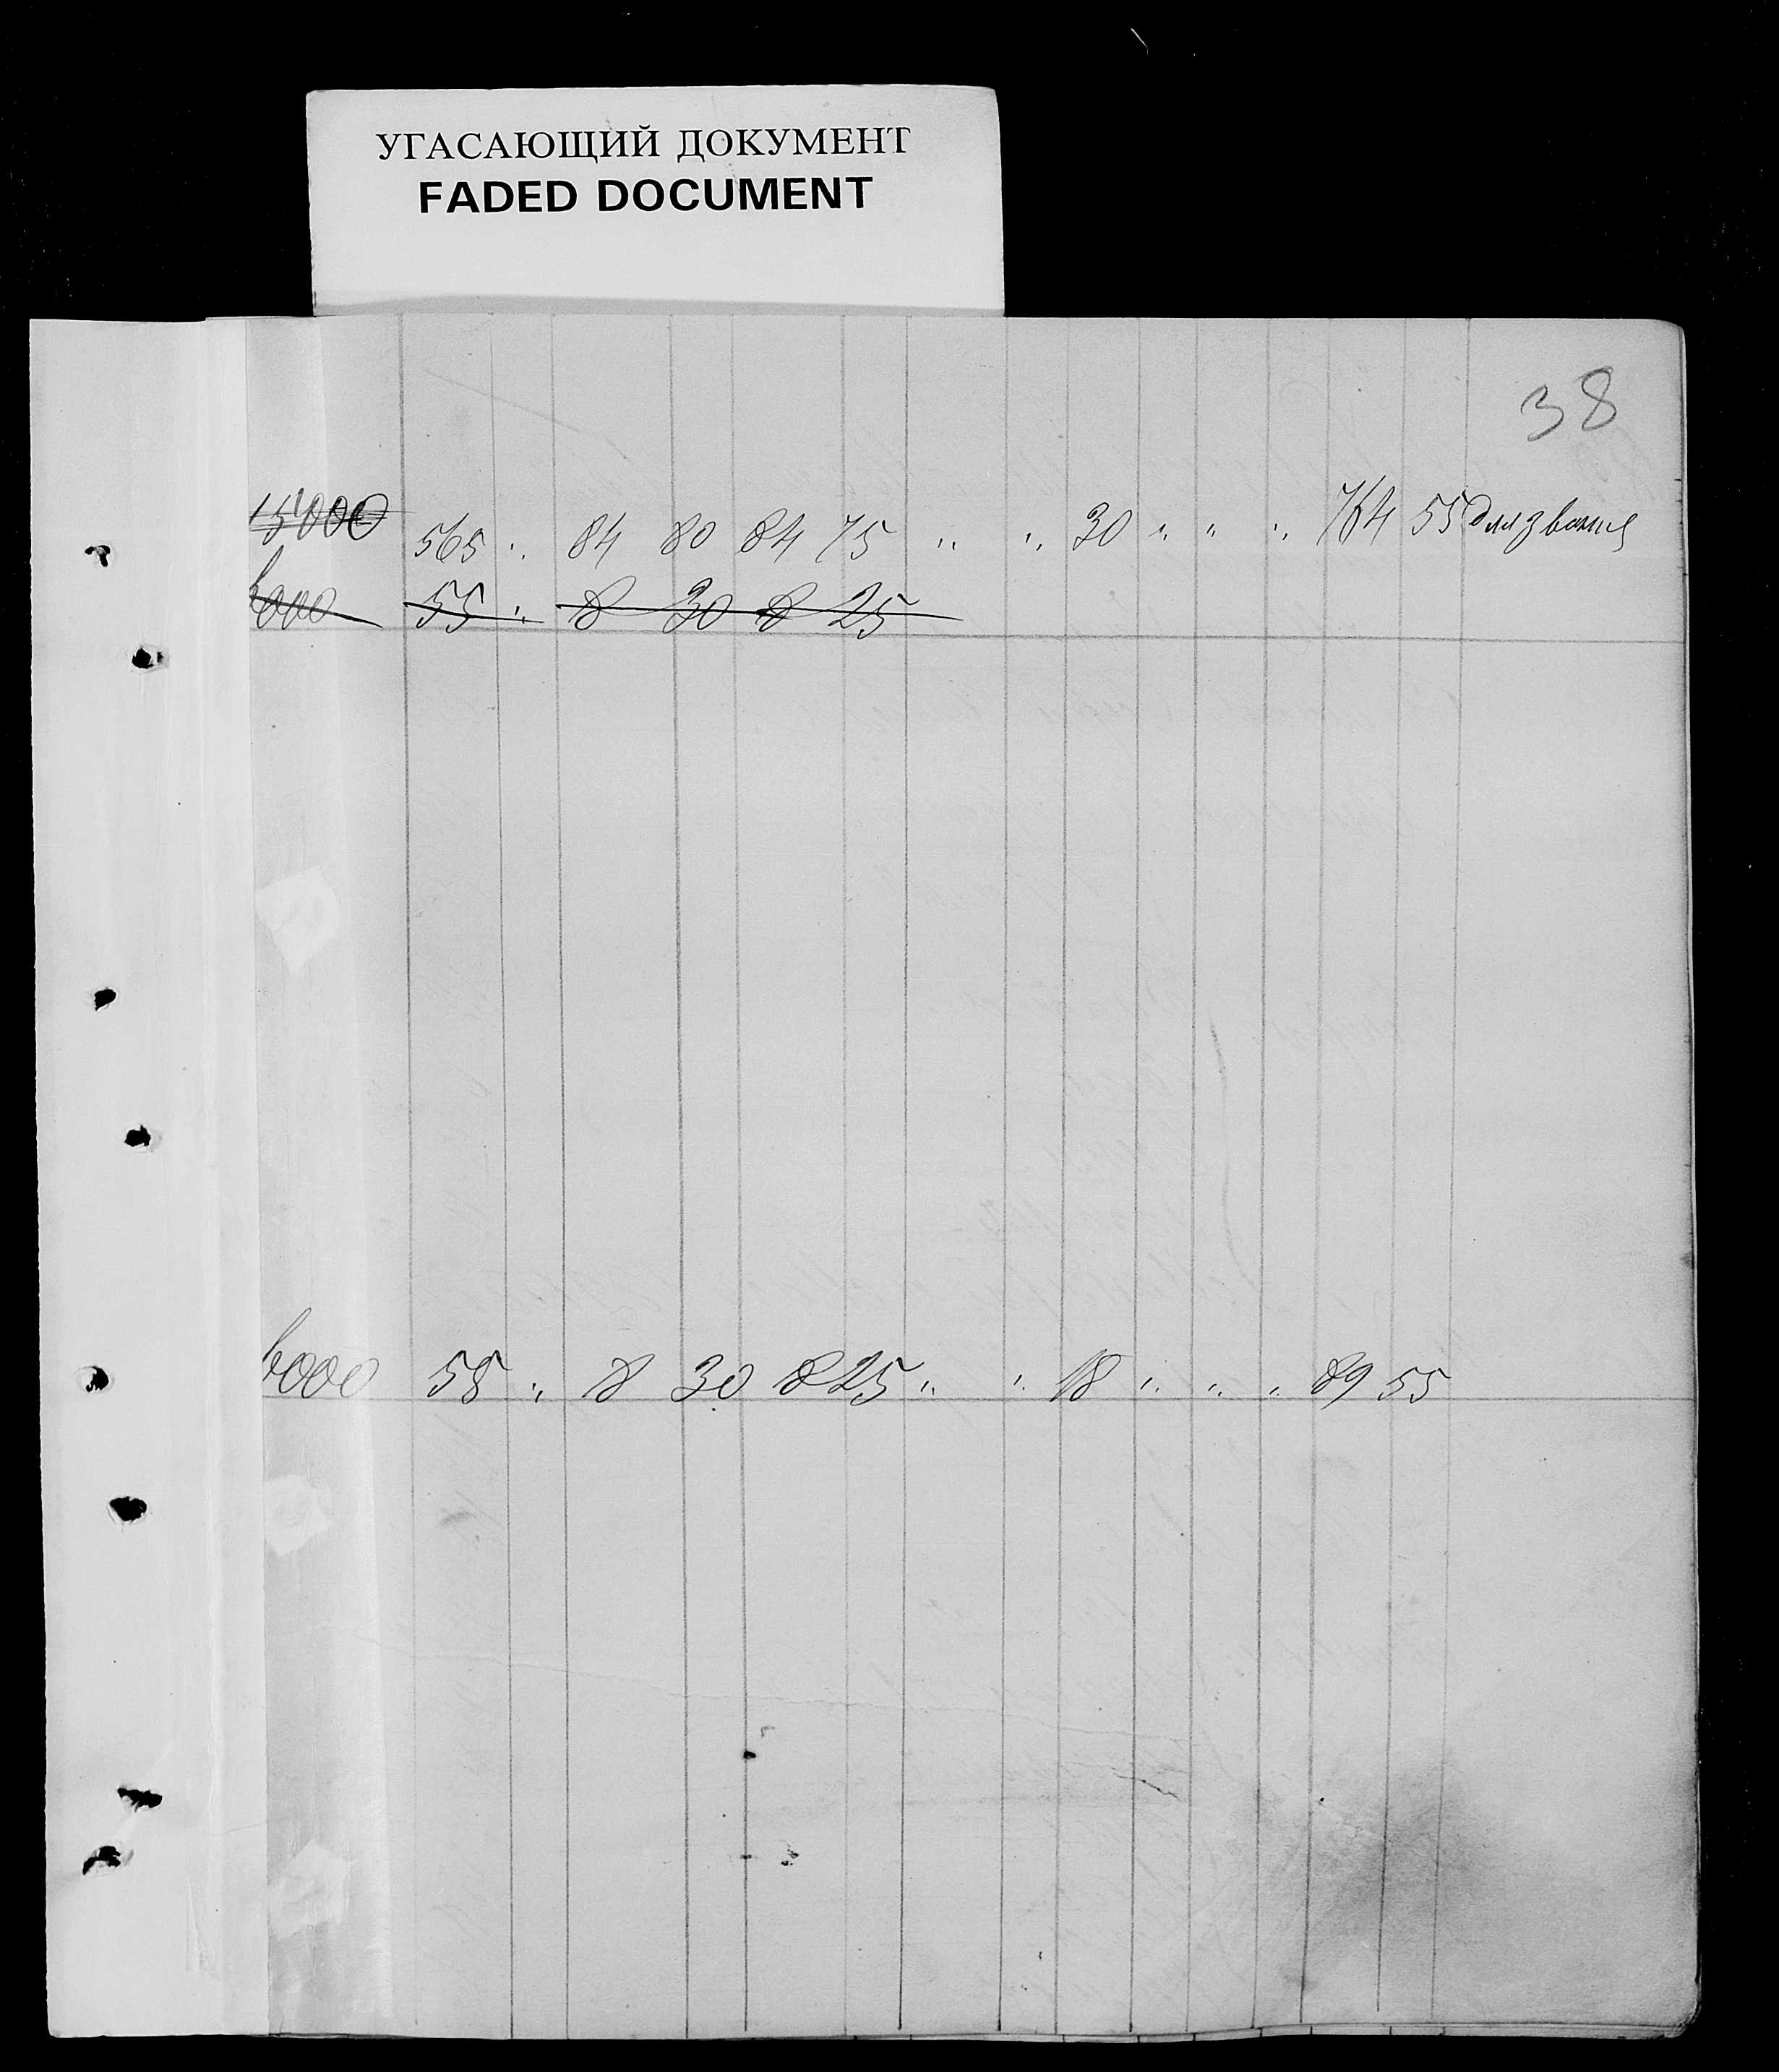 УГАСАЮЩИЙ ДОКУМЕНТ
FADED DOCUMENT
38
15000 565 " 84 80 84 75 " " 30 " " " 764 55
6000 55 " 8 30 8 25
6000 55 " 8 30 8 25 " " 18 " " " 89 55